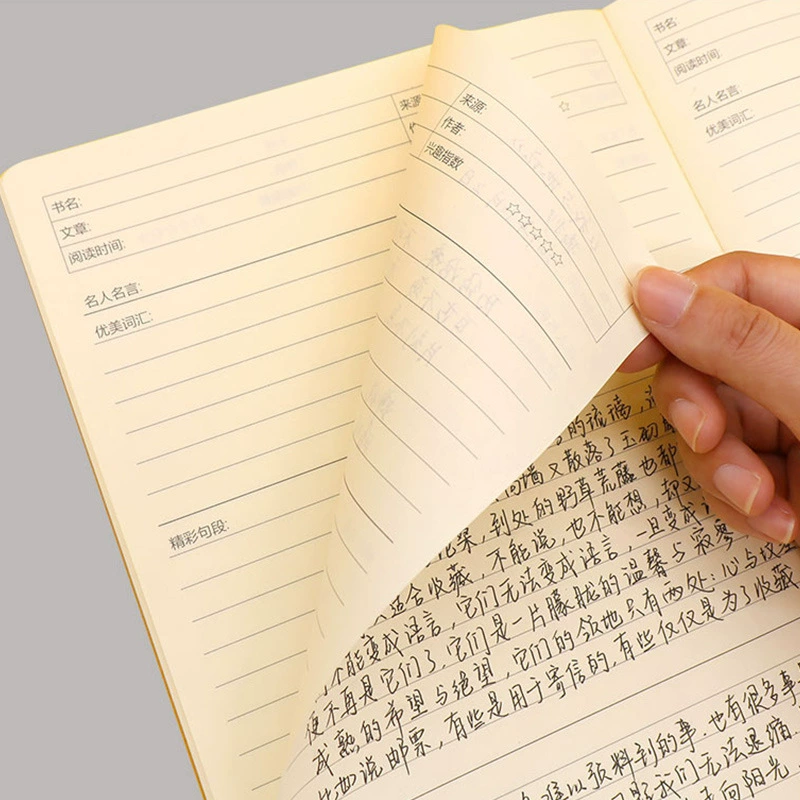 书名:
文章:
阅读时间:
来源:
名人名言:
优美词汇:
精彩句段:
来源:
作者:
兴趣指数
☆☆☆☆☆
书名:
文章:
阅读时间:
名人名言:
优美词汇:
的琉璃,
墙又散落了玉砌
,到处的野草荒藤也都
适合收藏,不能说,也不能想,却又
不能变成语言,它们无法变成语言,一旦变成
便不再是它们了.它们是一片朦胧的温馨与寂寥
成熟的希望与绝望,它们的领地只有两处:心与坟
比如说邮票,有些是用于寄信的,有些仅仅是为了收藏
难以预料到的事.也有很多事
我们无法退缩
向阳光,